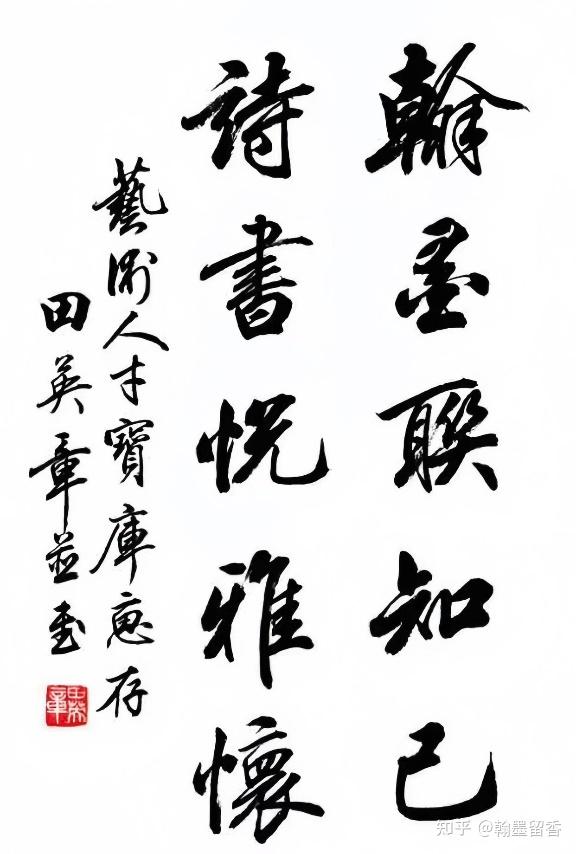 翰墨聯知己
詩書悦雅懷
藝術人才寶庫惠存
田英章並書
田英章
知乎 @翰墨留香